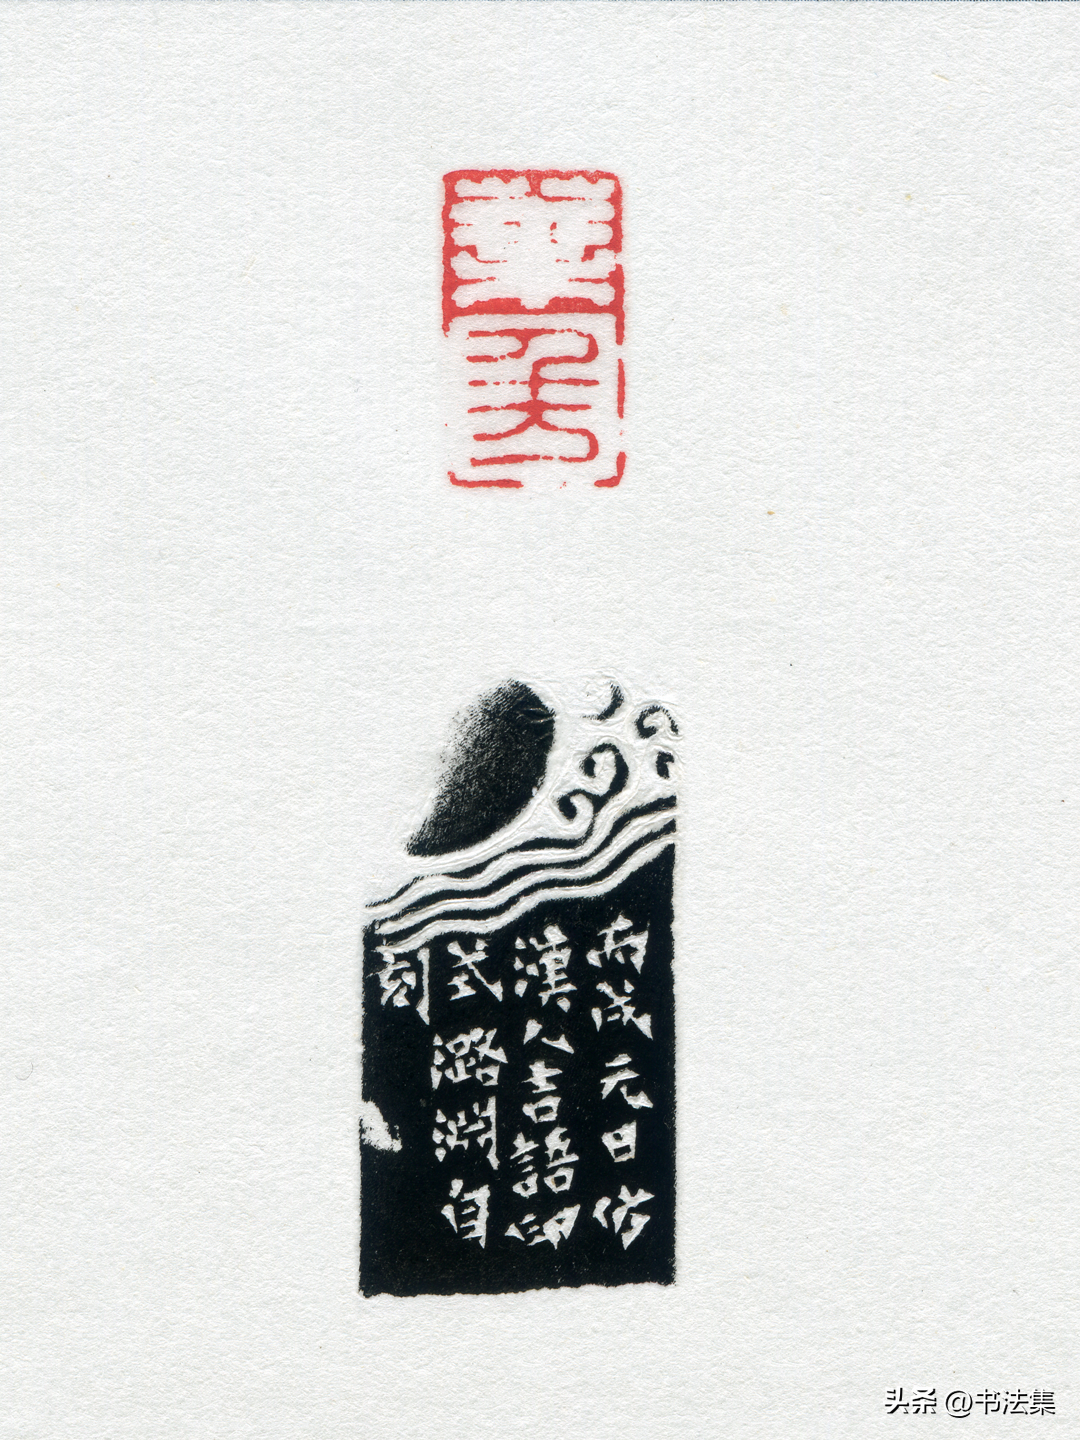 丙戌元日仿
漢人吉語印
式潞淵自
刻
头条 @书法集